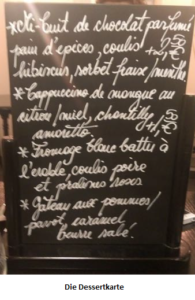 *Mi-cuit de chocolat parfumé
pain d'épices, coulis
hibiscus, sorbet fraise/menthe
*Cappuccino de mangue au
citron/miel, chantilly
amaretto.
*Fromage blanc battu à
l'érable, coulis poire
et pralines roses
*Gâteau aux pommes/
pavot, caramel
beurre salé.
Die Dessertkarte